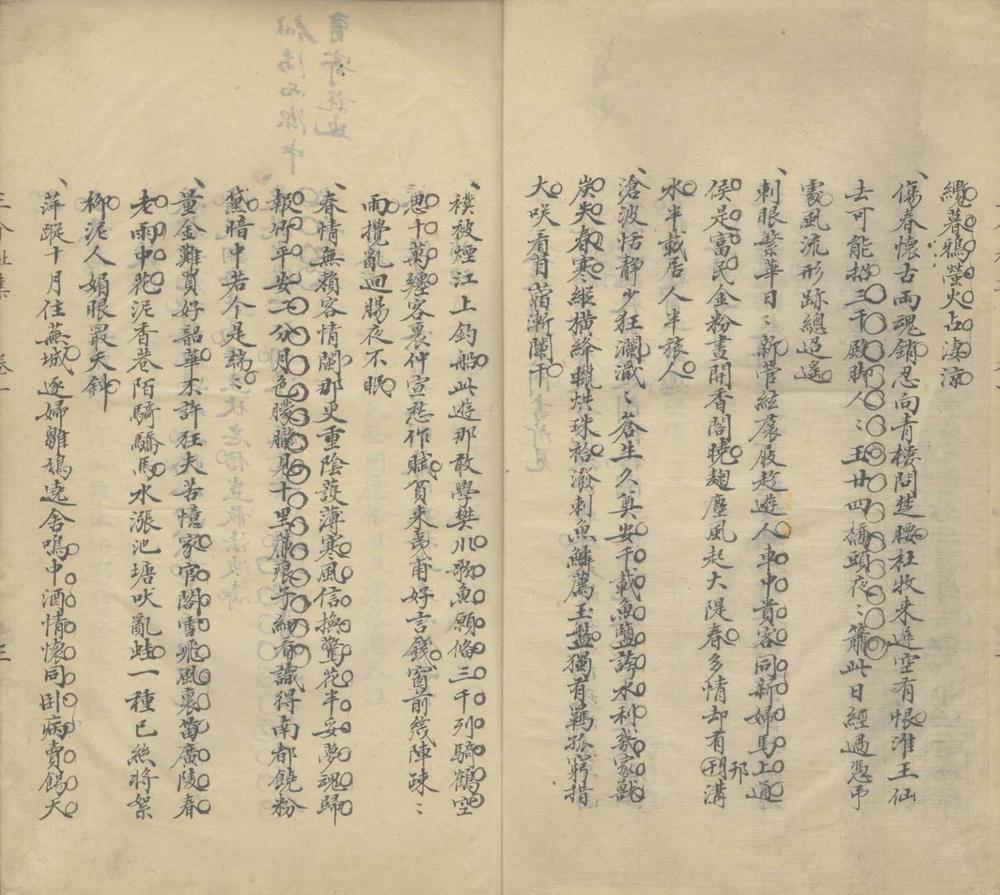 纔著鴉螢火占淒涼
傷春懷古兩魂銷忍向青樓問楚腰杜牧來遲空有恨淮王仙
去可能招三千殿腳人〻玉廿四橋頭夜〻簫此日經過憑弔
處風流形跡總迢遙
刺眼繁華日〻新管絃屧屐趁遊人車中貴客同新婦馬上通
侯是富民金粉畫開香閣曉麹塵風起大隄春多情却有刊溝
邗
水半載居人半旅人
滄波恬静少狂瀾瀛〻蒼生久奠安千載魚鹽誇水利幾家獸
炭失春寒縱橫絳蠟烘珠箔潑刺魚鱗薦玉盤獨有羈孤窮措
大咲看苜蓿漸闌干
襆被煙江上釣船此遊那敢學樊川歌魚願俗三千列騎鶴空
思十萬纏客裏仲宣愁作賦貧來禹甫好言錢窗前幾陣疎〻
雨攪亂迴腸夜不眠
春情無賴客情闌那更重陰護薄寒風信換鶯花半妥夢魂歸
報竹平安二分月色朦朧見十里簾痕子細看識得南都饒粉
黛暗中若个是端〻
量金難買好韶華未許狂夫苦憶家官閣雪飛風裏笛廣陵春
老雨中花泥香巷陌騎驕馬水漲池塘吠亂蛙一種已絲將絮
柳泥人媚眼最天斜
萍蹤十月住蕪城逐婦雛鳩遶舍鳴中酒情懷同卧病賣餳天
卷一
三